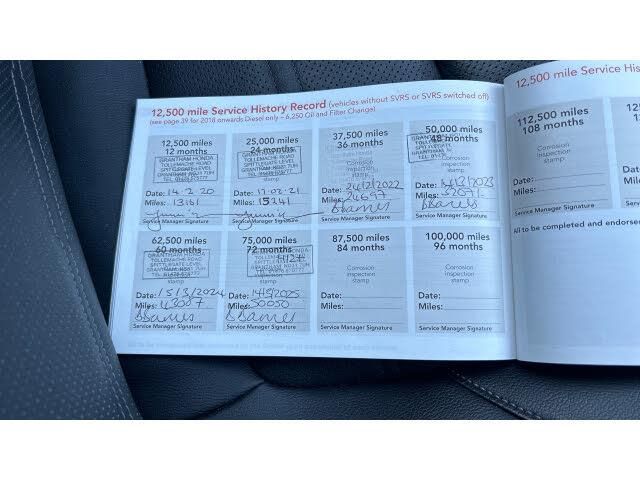 12,500 mile Service History Record (vehicles without SVRS or SVRS switched off)
(see page 39 for 2018 onwards Diesel only – 6,250 Oil and Filter Change)
12,500 miles
12 months
GRANTHAM HONDA
TOLLEMACHE ROAD
SPITTLEGATE LEVEL
Date: 14.2.20
Miles: 13161
Service Manager Signature
25,000 miles
24 months
GRANTHAM HONDA
TOLLEMACHE ROAD
SPITTLEGATE LEVEL
GRANTHAM NG31 7UH
stamp
Date: 17.02.21
Miles: 15241
Service Manager Signature
37,500 miles
36 months
Corrosion
inspection
stamp
Date: 24/2/2022
Miles: 24697
Service Manager Signature
50,000 miles
48 months
Corrosion
inspection
stamp
Date:
Miles:
Service Manager Signature
62,500 miles
60 months
GRANTHAM HONDA
TOLLEMACHE ROAD
SPITTLEGATE LEVEL
stamp
Date: 15/3/2024
Miles: 43007
Service Manager Signature
75,000 miles
72 months
GRANTHAM HONDA
TOLLEMACHE ROAD
stamp
Date:
Miles: 50050
Service Manager Signature
87,500 miles
84 months
Corrosion
inspection
stamp
Date:
Miles:
Service Manager Signature
100,000 miles
96 months
Corrosion
inspection
stamp
Date:
Miles:
Service Manager Signature
12,500 mile Service His
112,500 miles
108 months
Corrosion
inspection
stamp
Date:
Miles:
Service Manager Signature
All to be completed and endorsed